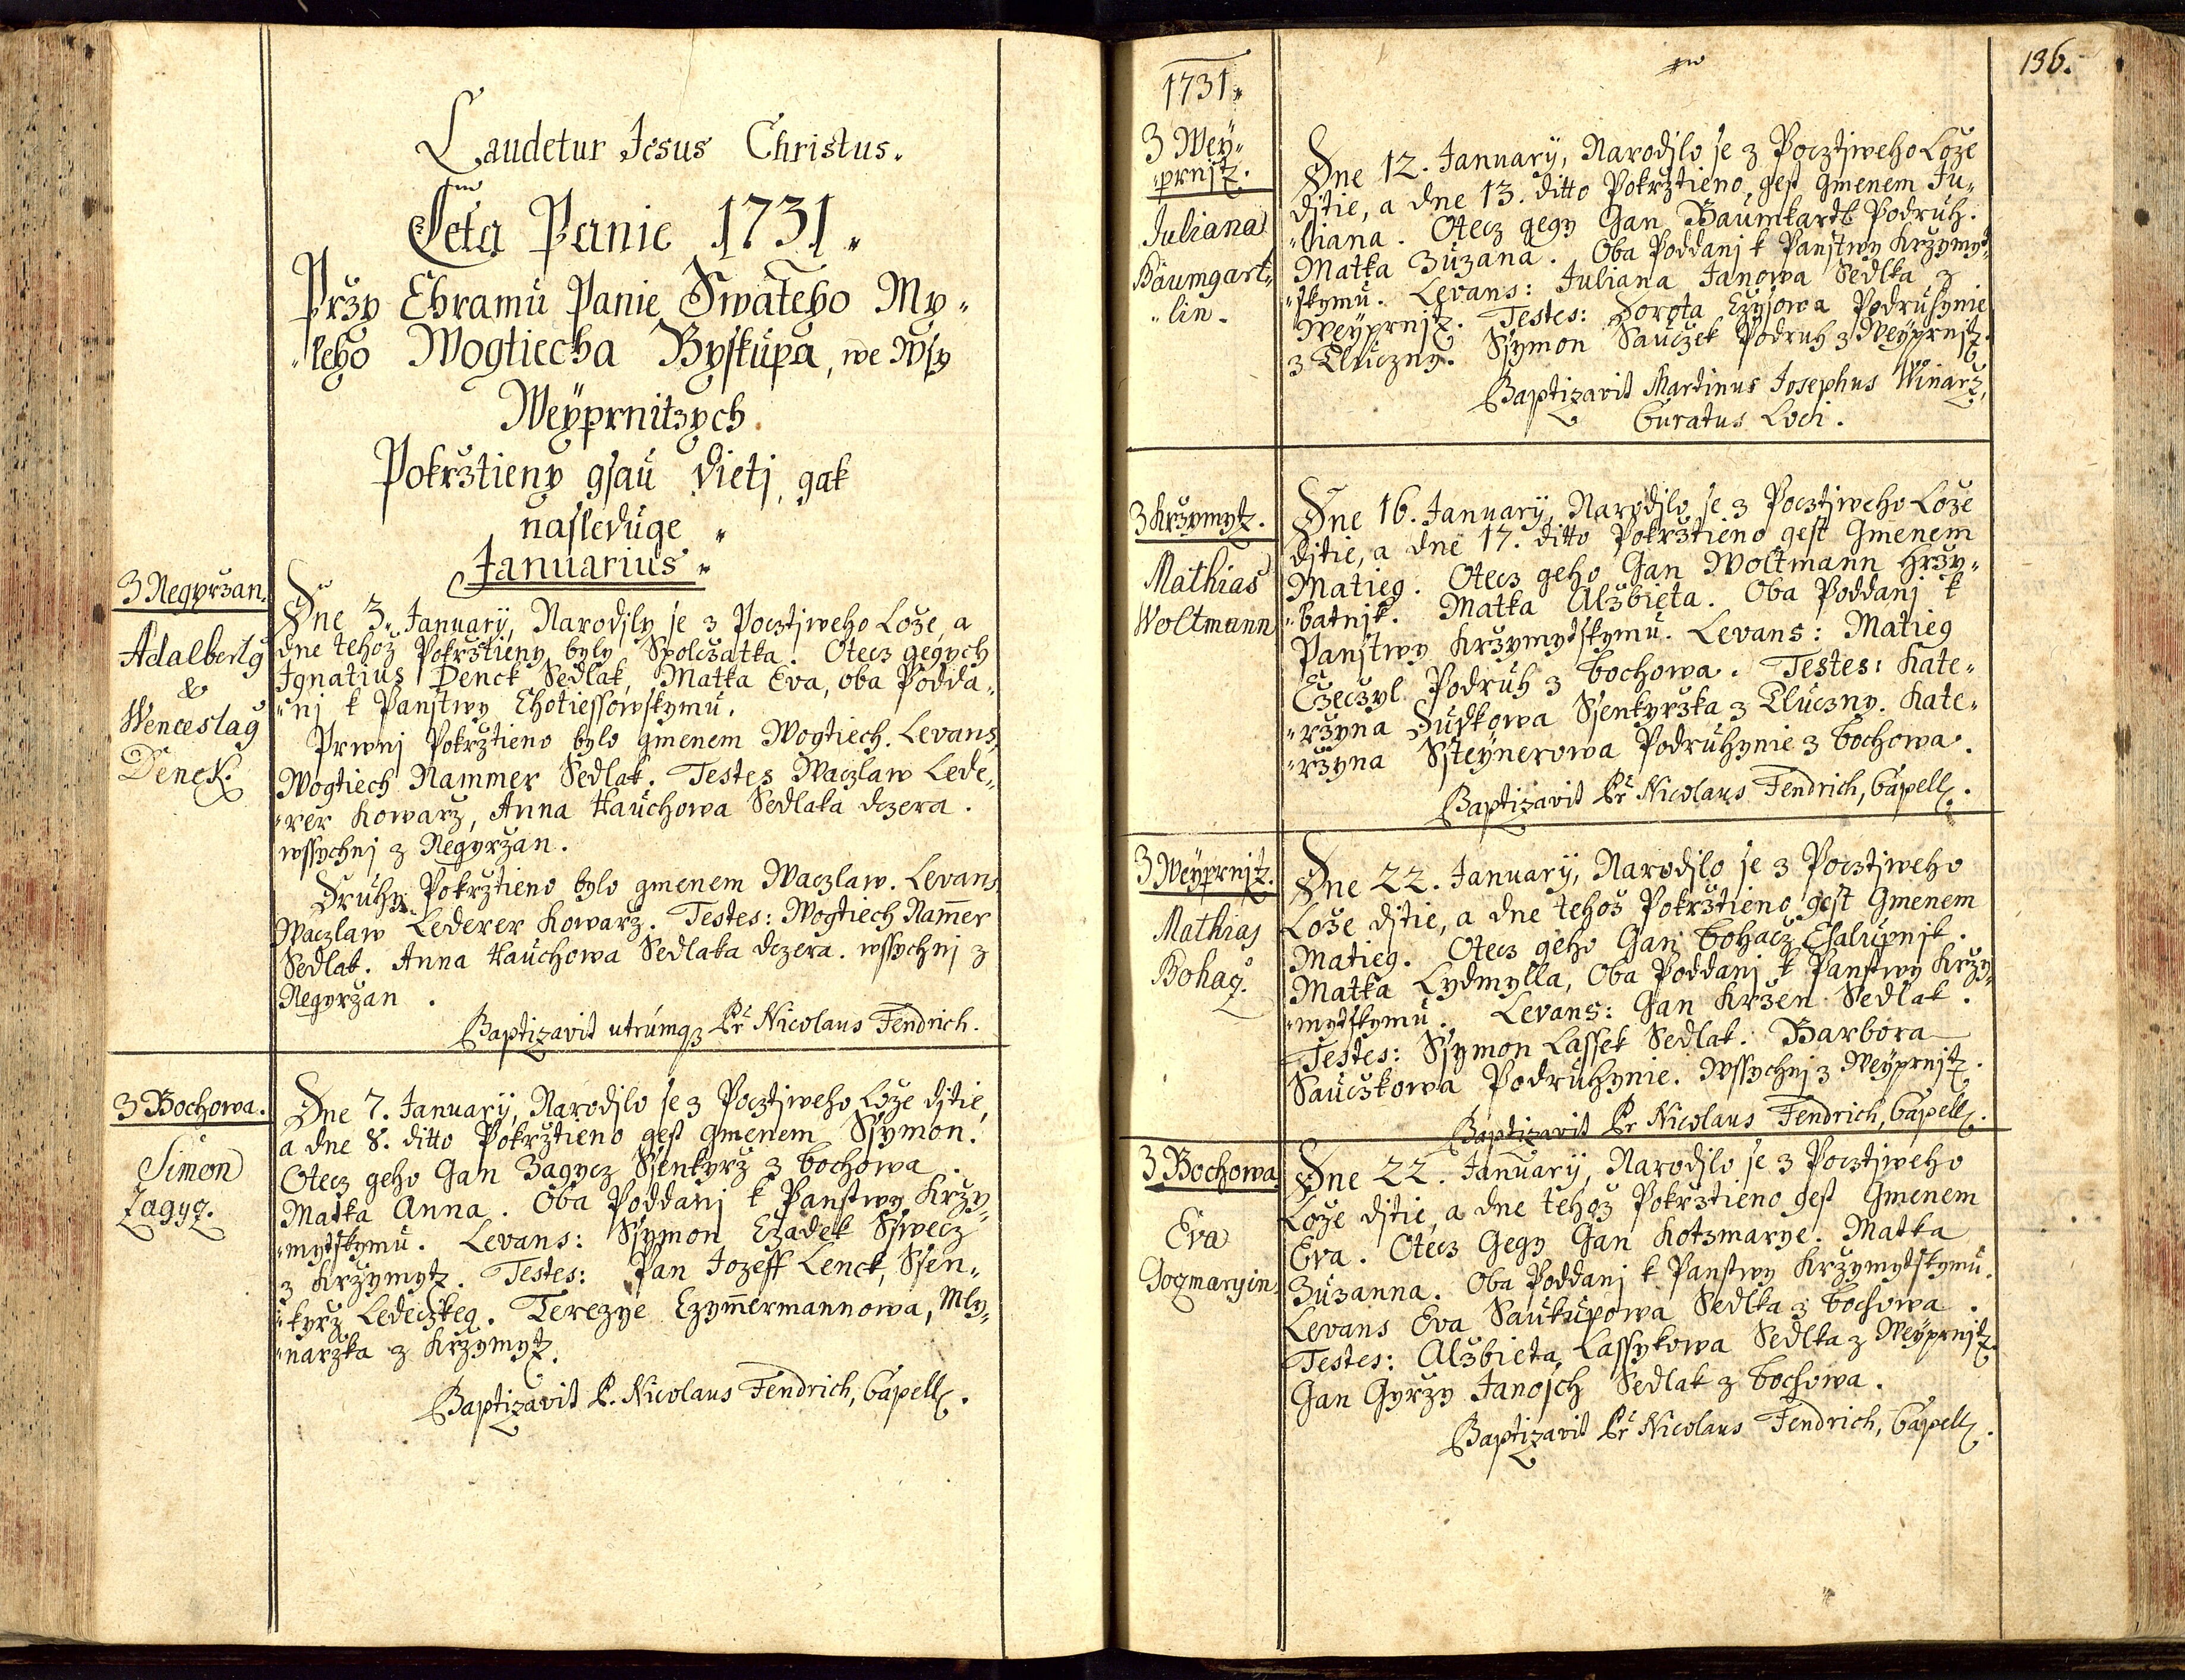 Laudetur Jesus Christus.
Leta Panie 1731.
Przy Chramu Panie Swateho My„
„leho Wogtiecha Byskupa, we Wsy
Weÿprnitzych
Pokrztieny gsau Dietj, gak
nasleduge
Januarius
Z Negyrzan.
Adalberty
&
Wenceslaq
Denck.
Dne 3. Januarÿ, Narodjly se z Pocztjweho Loze, a
dne tehoz Pokrztieny byly Spolczatka. Otecz gegych
Ignatius Denck Sedlak, Matka Eva, oba Podda„
„nj k Panstwy Chotiessowskymu.
Prwnj Pokrztieno bylo gmenem Wogtiech. Levans
Wogtiech Nammer Sedlak. Testes Waczlaw Lede„
„rer Kowarz, Anna Hauchowa Sedlaka dczera.
wssychnj z Negyrzan.
Druhy Pokrztieno bylo gmenem Waczlaw. Levans
Waczlaw Lederer Kowarz. Testes: Wogtiech Nam̄er
Sedlak. Anna Hauchowa Sedlaka dczera. wssychnj z
Negyrzan.
Baptizavit utrumq3 Pr Nicolaus Fendrich.
Z Bochowa.
Simon
Zagyq.
Dne 7. Januarÿ, Narodjlo se z Pocztjweho Loze djtie,
a dne 8. ditto Pokrztieno gest gmenem Ssymon.
Otecz geho Gan Zagycz Ssenkyrz z Bochowa.
Matka Anna. Oba Poddanj k Panstwy Krzy„
„mytskymu. Levans: Ssymon Czadek Sswecz
z Krzymytz. Testes: Pan Jozeff Lenck, Ssen„
„kyrz Ledeczkeg. Terezye Czym̄ermannowa, Mly„
„narzka z Krzymytz.
Baptizavit P. Nicolaus Fendrich, Capell.
136.
1731.
Z Weÿ„
„prnjtz.
Juliana
Baumgart„
„lin.
Dne 12. Januarÿ, Narodjlo se z Pocztjweho Loze
djtie, a dne 13. ditto Pokrztieno gest gmenem Ju„
„liana. Otecz gegy Gan Baumkardt Podruh.
Matka Zuzana. Oba Poddanj k Panstwy Krzymyt„
„skymu. Levans: Juliana Janowa Sedlka z
Weÿprnjtz. Testes: Dorota Czysowa Podruhynie
z Tluczny. Ssymon Sauczek Podruh z Weÿprnjtz.
Baptizavit Martinus Josephus Winarz,
Curatus Loci.
Z Krzymytz.
Mathias
Woltmann
Dne 16. Januarÿ, Narodjlo se z Pocztjweho Loze
djtie, a dne 17. ditto Pokrztieno gest Gmenem
Matieg. Otecz geho Gan Woltmann Hrzy„
„batnjk. Matka Alzbieta. Oba Poddanj k
Panstwy Krzymytskymu. Levans: Matieg
Czeczyl Podruh z Bochowa. Testes: Kate„
„rzyna Dudkowa Ssenkyrzka z Tluczny. Kate„
„rzyna Ssteÿnerowa Podruhynie z Bochowa.
Baptizavit Pr Nicolaus Fendrich, Capell.
Z Weÿprnjtz.
Mathias
Bohaq.
Dne 22. Januarÿ, Narodjlo se z Pocztjweho
Loze djtie, a dne tehoz Pokrztieno gest Gmenem
Matieg. Otecz geho Gan Bohacz Chalupnjk.
Matka Lydmylla, Oba Poddanj k Panstwy Krzy„
„mytskymu. Levans: Gan Krzen Sedlak.
Testes: Ssymon Lassek Sedlak. Barbora
Sauczkowa Podruhynie. Wssychnj z Weÿprnjtz.
Baptizavit Pr Nicolaus Fendrich, Capell.
Z Bochowa
Eva
Gogmaryin.
Dne 22. Januarÿ, Narodjlo se z Pocztjweho
Loze djtie, a dne tehoz Pokrztieno gest Gmenem
Eva. Otecz Gegy Gan Kotzmarye. Matka
Zuzanna. Oba Poddanj k Panstwy Krzymytskymu.
Levans Eva Saukupowa Sedlka z Bochowa.
Testes: Alzbieta Lassykowa Sedlka z Weÿprnjtz.
Gan Gyrzy Janosch Sedlak z Bochowa.
Baptizavit Pr Nicolaus Fendrich, Capell.